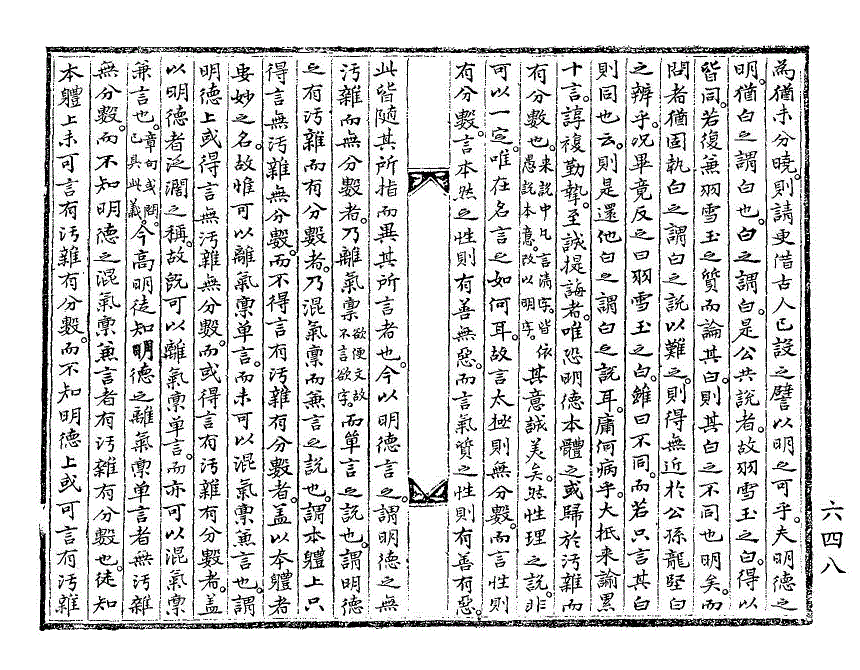 為猶未分曉則請更借古人已設之譬以明之可乎夫明德之
明猶白之謂白也白之謂白是公共說者故羽雪玉之白得以
皆同若復兼羽雪玉之質而論其白則其白之不同也明矣而
問者猶固執白之謂白之說以難之則得無近於公孫龍堅白
之辨乎况畢竟反之曰羽雪玉之白雖曰不同而若只言其白
則同也云則是還他白之謂白之說耳庸何病乎大抵來諭累
十言諄複勤摯至誠提誨者唯恐明德本體之或歸於汚雜而
有分數也來說中凡言清字皆依愚說本意改以明字其意誠美矣然性理之說非
可以一定唯在名言之如何耳故言太極則無分數而言性則
有分數言本然之性則有善無惡而言氣質之性則有善有惡
此皆隨其所指而異其所言者也今以明德言之謂明德之無
汚雜而無分數者乃離氣稟欲便文故不言欲字而單言之說也謂明德
之有汚雜而有分數者乃混氣稟而兼言之說也謂本體上只
得言無汚雜無分數而不得言有汚雜有分數者盖以本體者
要妙之名故惟可以離氣稟單言而未可以混氣稟兼言也謂
明德上或得言無汚雜無分數而或得言有汚雜有分數者盖
以明德者泛濶之稱故旣可以離氣稟單言而亦可以混氣稟
兼言也章句或問已具此義今高明徒知明德之離氣稟单言者無汚雜
無分數而不知明德之混氣稟兼言者有汚雜有分數也徒知
本體上未可言有汚雜有分數而不知明德上或可言有汚雜
六四八